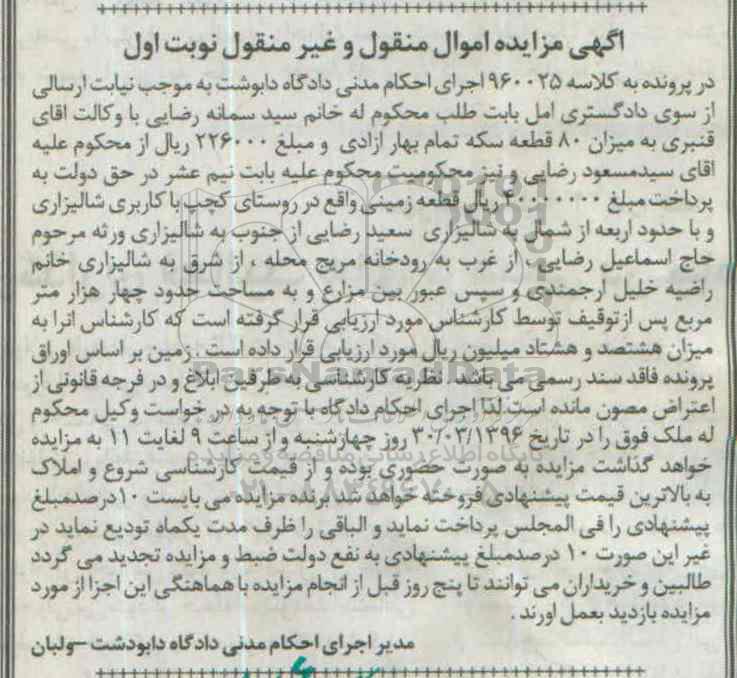 آگهی مزایده اموال منقول و غیر منقول نوبت اول
در پرونده به کلاسه ۹۶۰۰۲۵ اجرای احکام مدنی دادگاه دابوشت به موجب نیابت ارسالی
از سوی دادگستری امل بابت طلب محکوم له خانم سید سمانه رضایی با وکالت اقای
قنبری به میزان ۸۰ قطعه سکه تمام بهار ازادی و مبلغ ۲۲۶۰۰۰ ریال از محکوم علیه
اقای سیدمسعود رضایی و نیز محکومیت محکوم علیه بابت نیم عشر در حق دولت به
پرداخت مبلغ ۴۰۰۰۰۰۰۰ ریال قطعه زمینی واقع در روستای کچپ با کاربری شالیزاری
و با حدود اربعه از شمال به شالیزاری سعید رضایی از جنوب به شالیزاری ورثه مرحوم
حاج اسماعیل رضایی ، از غرب به رودخانه مریج محله ، از شرق به شالیزاری خانم
راضیه خلیل ارجمندی و سپس عبور بین مزارع و به مساحت حدود چهار هزار متر
مربع پس ازتوقیف توسط کارشناس مورد ارزیابی قرار گرفته است که کارشناس انرا به
میزان هشتصد و هشتاد میلیون ریال مورد ارزیابی قرار داده است . زمین بر اساس اوراق
پرونده فاقد سند رسمی می باشد. نظریه کارشناسی به طرفین ابلاغ و در فرجه قانونی از
اعتراض مصون مانده است لذا اجرای احکام دادگاه با توجه به در خواست وکیل محکوم
له ملک فوق را در تاریخ ۳۰/۰۳/۱۳۹۶ روز چهارشنبه و از ساعت ۹ لغایت ۱۱ به مزایده
خواهد گذاشت مزایده به صورت حضوری بوده و از قیمت کارشناسی شروع و املاک
به بالاترین قیمت پیشنهادی فروخته خواهد شد برنده مزایده می بایست ۱۰درصدمبلغ
پیشنهادی را فی المجلس پرداخت نماید و الباقی را ظرف مدت یکماه تودیع نماید در
غیر این صورت ۱۰ درصدمبلغ پیشنهادی به نفع دولت ضبط و مزایده تجدید می گردد
طالبین و خریداران می توانند تا پنج روز قبل از انجام مزایده با هماهنگی این اجرا از مورد
مزایده بازدید بعمل اورند .
مدیر اجرای احکام مدنی دادگاه دابودشت –ولبان
ParsNamadData
پایگاه اطلاع رسانی مناقصه و مزایده